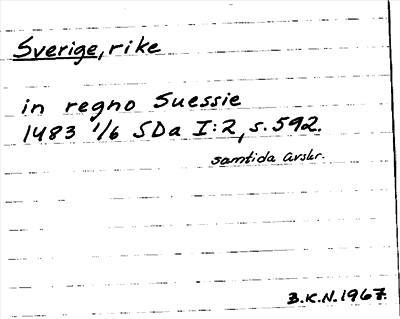 Sverige, rike
in regno Suessie
1483 1/6 SDa I:2, s. 592.
samtida avskr.
B.K.N. 1967.